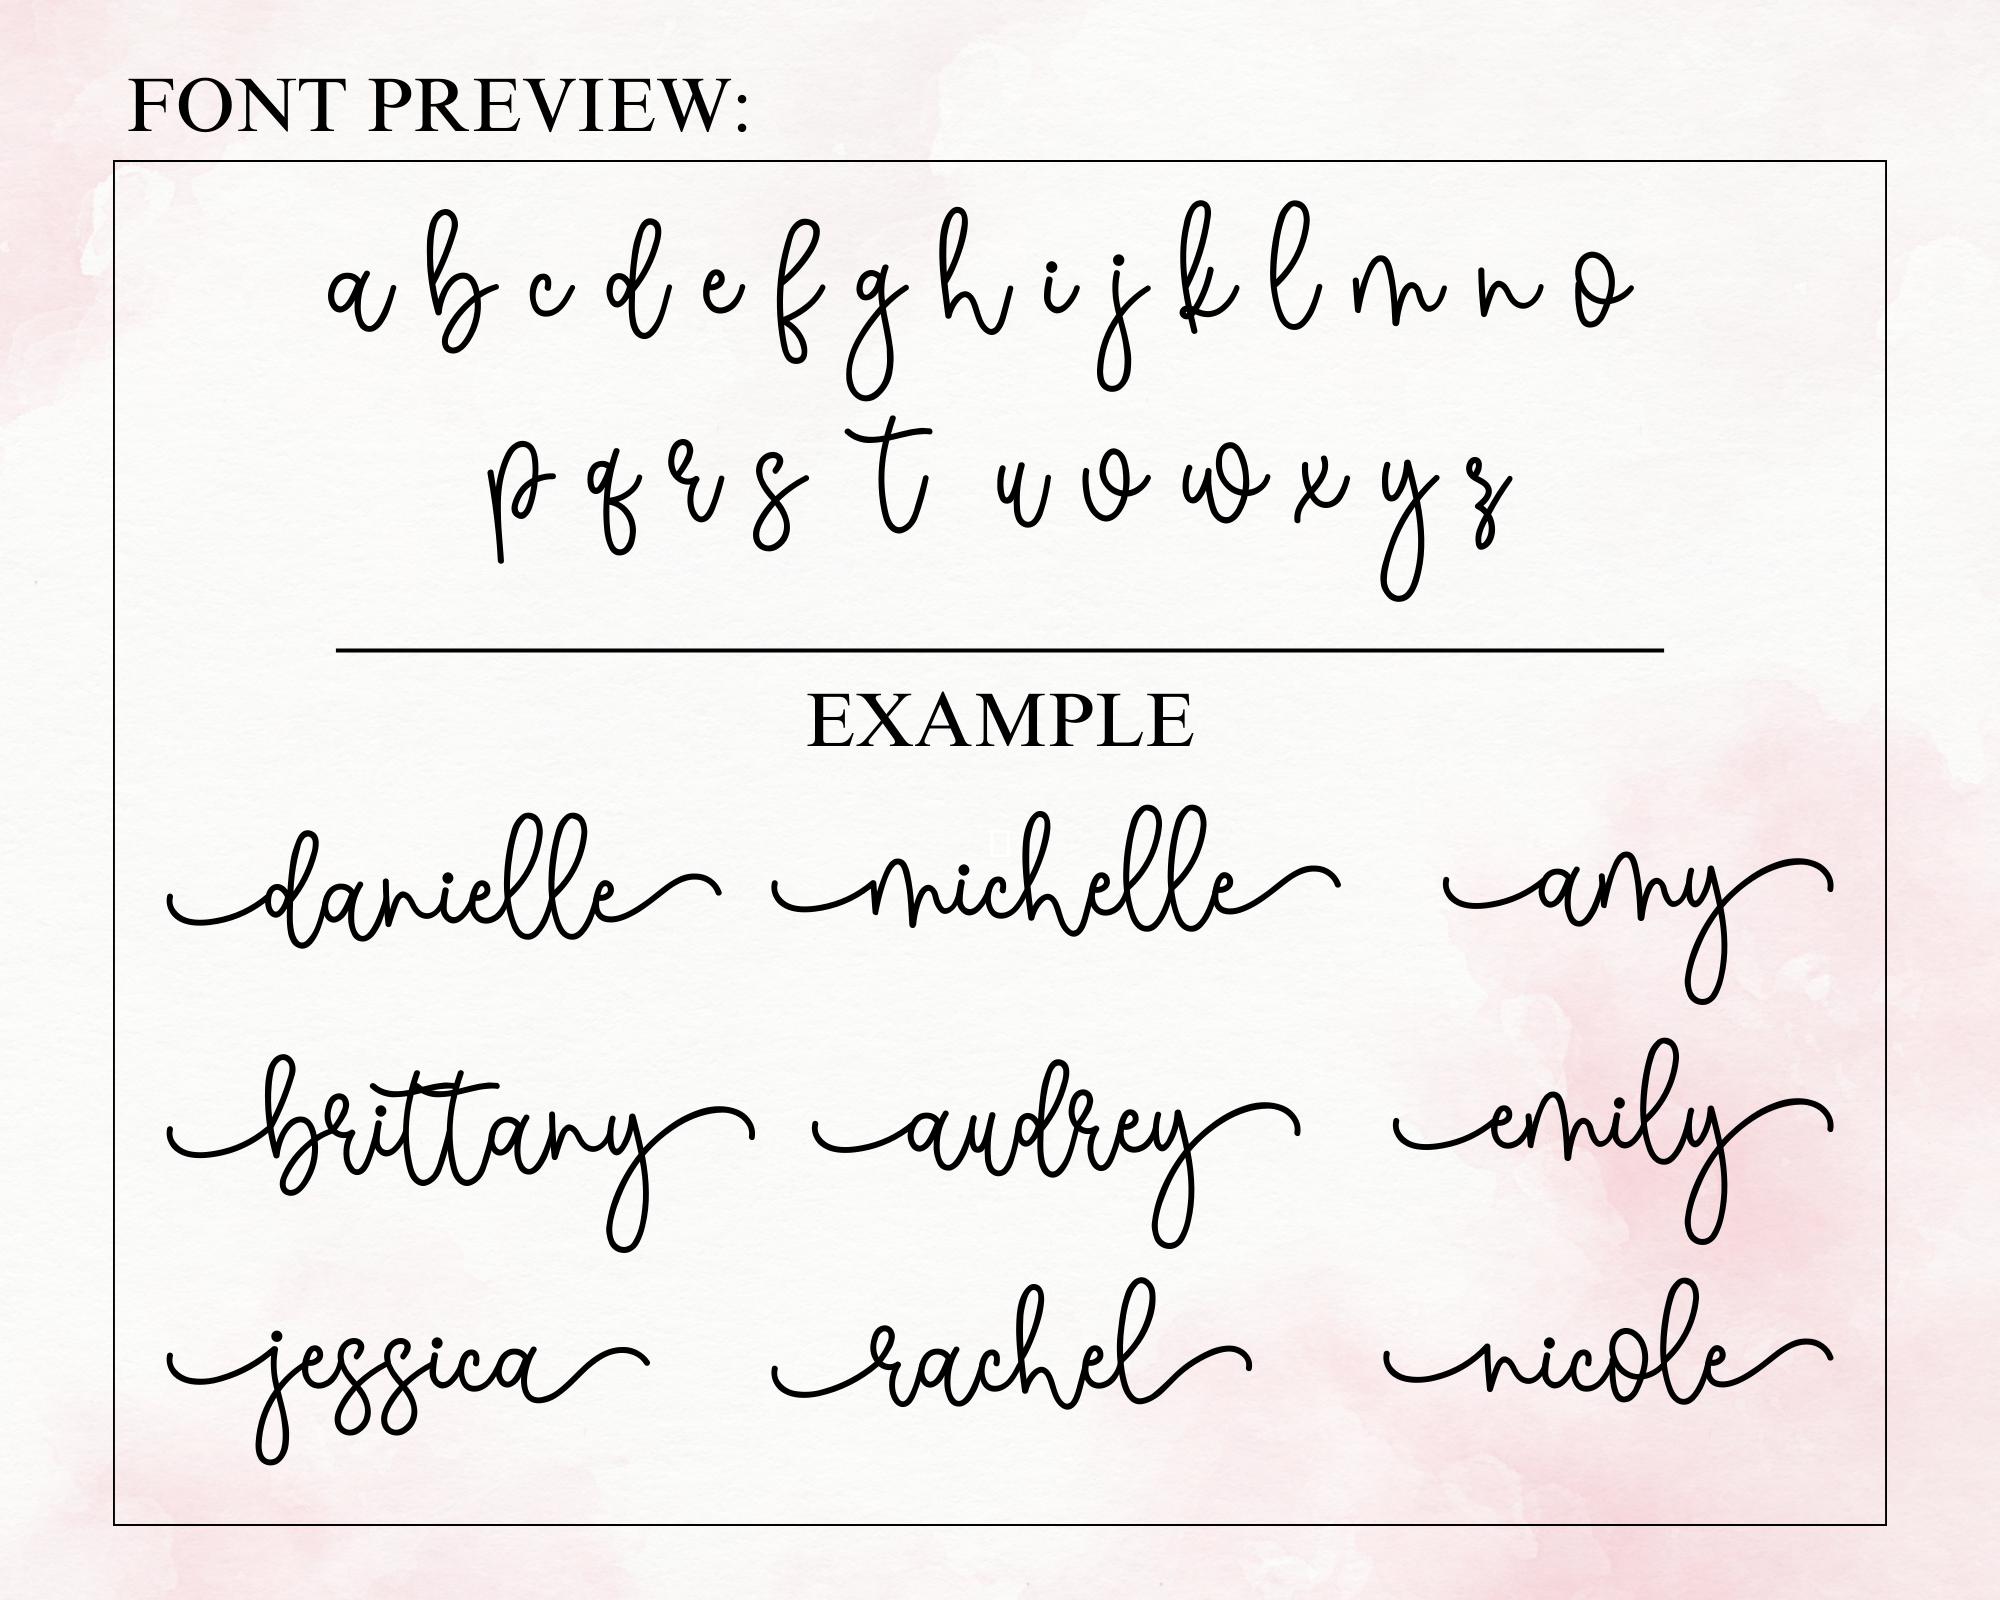 FONT PREVIEW:
a b c d e f g h i j k l m n o
p q r s t u v w x y z
EXAMPLE
danielle michelle amy
brittany audrey emily
jessica rachel nicole